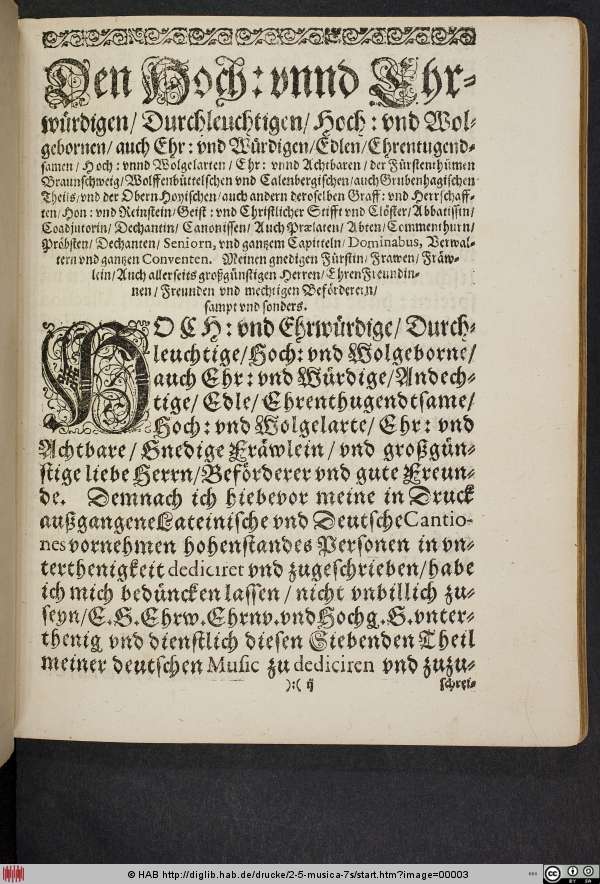 Den Hoch: vnnd Ehr-
würdigen/ Durchleuchtigen/ Hoch: vnd Wol-
gebornen/ auch Ehr: vnd Würdigen/ Edlen/ Ehrentugend-
samen/ Hoch: vnnd Wolgelarten/ Ehr: vnnd Achtbaren/ der Fürstenthümen
Braunschweig/ Wolffenbüttelschen vnd Calenbergischen/ auch Grubenhagischen
Theils/ vnd der Obern Hoyischen/ auch andern deroselben Graff: vnd Herrschaff-
ten/ Hon: vnd Reinstein/ Geist: vnd Christlicher Stifft vnd Clöster/ Abbatissin/
Coadjutorin/ Dechantin/ Canonissen/ Auch Prælaten/ Abten/ Commenthurn/
Pröbsten/ Dechanten/ Seniorn, vnd gantzem Capitteln/ Dominabus, Verwal-
tern vnd gantzen Conventen. Meinen gnedigen Fürstin/ Frawen/ Fräw-
lein/ Auch allerseits großgünstigen Herren/ EhrenFreundin-
nen/ Freunden vnd mechtigen Beförderern/
sampt vnd sonders.
HOCH: vnd Ehrwürdige/ Durch-
leuchtige/ Hoch: vnd Wolgeborne/
auch Ehr: vnd Würdige/ Andech-
tige/ Edle/ Ehrenthugendtsame/
Hoch: vnd Wolgelarte/ Ehr: vnd
Achtbare/ Gnedige Fräwlein/ vnd großgün-
stige liebe Herrn/ Beförderer vnd gute Freun-
de. Demnach ich hiebevor meine in Druck
außgangene Lateinische vnd Deutsche Cantio-
nes vornehmen hohenstandes Personen in vn-
terthenigkeit dediciret vnd zugeschrieben/ habe
ich mich bedüncken lassen/ nicht vnbillich zu-
seyn/ E. G. Ehrw. Ehrnv. vnd Hochg. G. vnter-
thenig vnd dienstlich diesen Siebenden Theil
meiner deutschen Music zu dediciren vnd zuzu-
):( ij schrei-
© HAB http://diglib.hab.de/drucke/2-5-musica-7s/start.htm?image=00003
cc BY SA